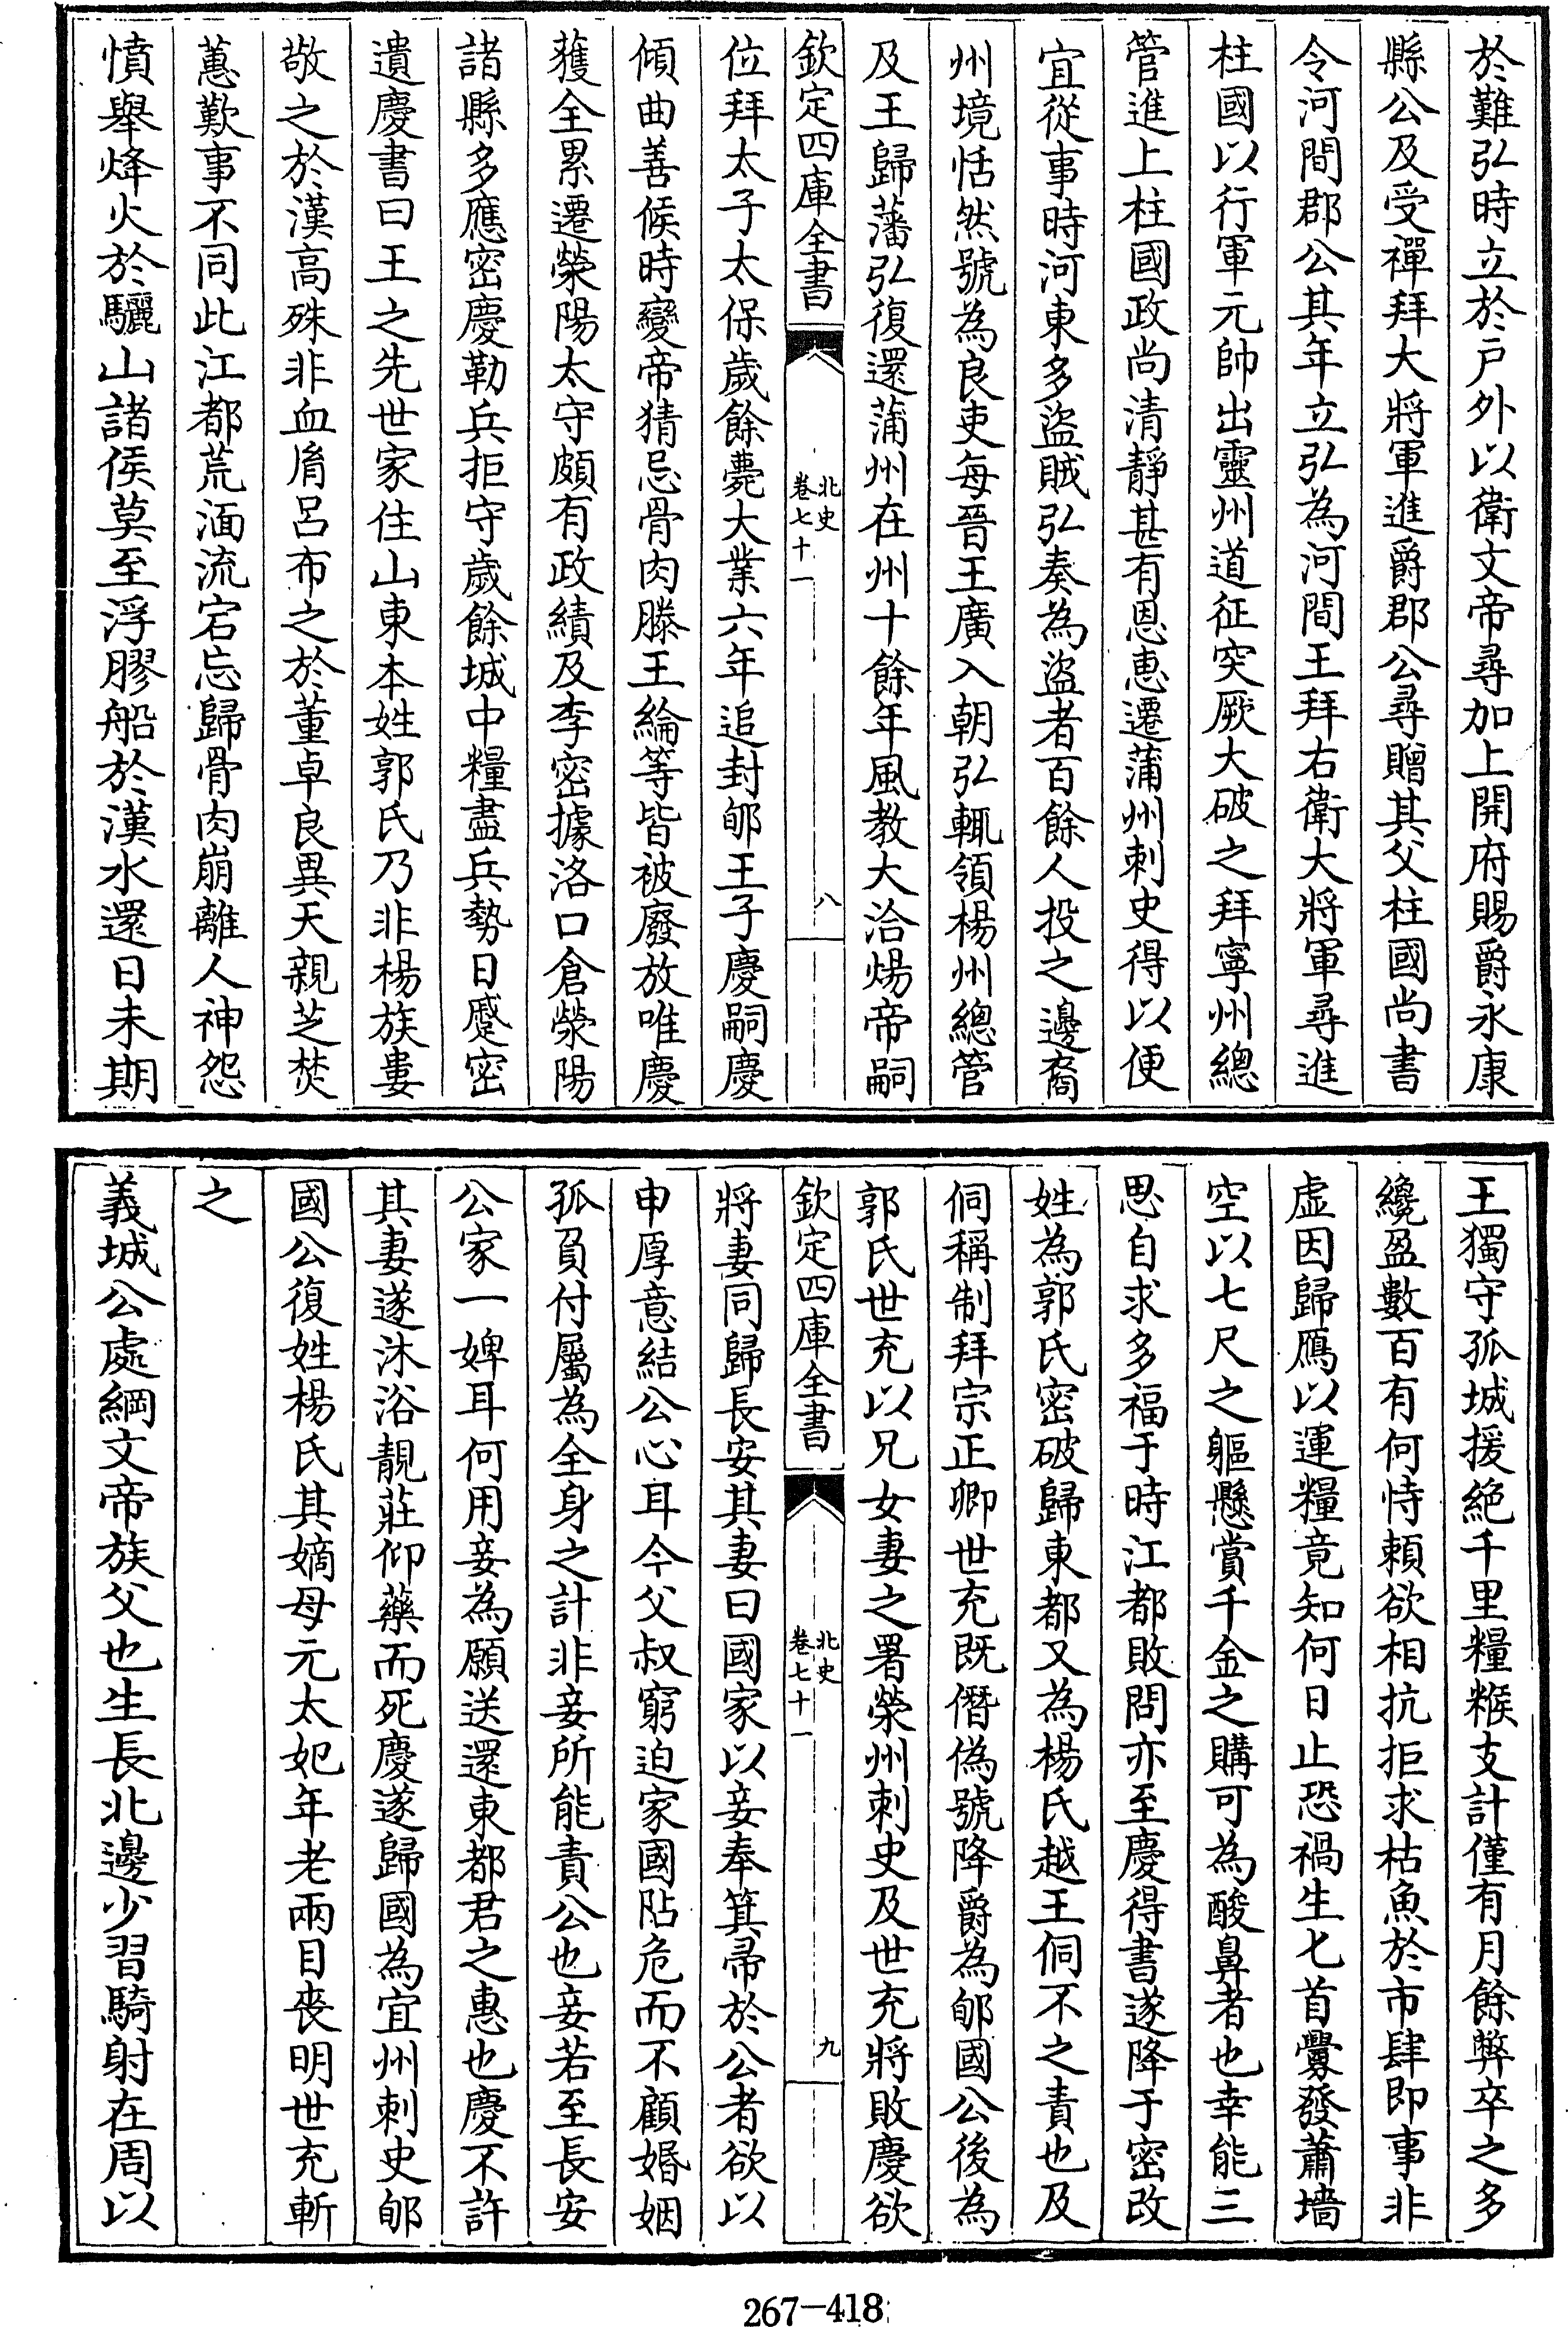 於難弘時立於戶外以衛文帝尋加上開府賜爵永康
縣公及受禪拜大將軍進爵郡公尋贈其父柱國尚書
令河間郡公其年立弘為河間王拜右衛大將軍尋進
柱國以行軍元帥出靈州道征突厥大破之拜寧州總
管進上柱國政尚清靜甚有恩惠遷蒲州刺史得以便
宜從事時河東多盜賊弘奏為盜者百餘人投之邊裔
州境恬然號為良吏每晉王廣入朝弘輒領楊州總管
及王歸藩弘復還蒲州在州十餘年風教大洽煬帝嗣
欽定四庫全書
北史
卷七十一
八
位拜太子太保歲餘薨大業六年追封郇王子慶嗣慶
傾曲善候時變帝猜忌骨肉滕王綸等皆被廢放唯慶
獲全累遷滎陽太守頗有政績及李密據洛口倉滎陽
諸縣多應密慶勒兵拒守歲餘城中糧盡兵勢日蹙密
遺慶書曰王之先世家住山東本姓郭氏乃非楊族婁
敬之於漢高殊非血胤呂布之於董卓良異天親芝焚
蕙歎事不同此江都荒湎流宕忘歸骨肉崩離人神怨
憤舉烽火於驪山諸侯莫至浮膠船於漢水還日未期
王獨守孤城援絕千里糧糇支計僅有月餘弊卒之多
纔盈數百有何恃賴欲相抗拒求枯魚於市肆即事非
虛因歸鴈以運糧竟知何日止恐禍生匕首釁發蕭墻
空以七尺之軀懸賞千金之購可為酸鼻者也幸能三
思自求多福于時江都敗問亦至慶得書遂降于密改
姓為郭氏密破歸東都又為楊氏越王侗不之責也及
侗稱制拜宗正卿世充既僭偽號降爵為郇國公後為
郭氏世充以兄女妻之署滎州刺史及世充將敗慶欲
欽定四庫全書
北史
卷七十一
九
將妻同歸長安其妻曰國家以妾奉箕帚於公者欲以
申厚意結公心耳今父叔窮迫家國阽危而不顧婚姻
孤負付屬為全身之計非妾所能責公也妾若至長安
公家一婢耳何用妾為願送還東都君之惠也慶不許
其妻遂沐浴靚莊仰藥而死慶遂歸國為宜州刺史郇
國公復姓楊氏其嫡母元太妃年老兩目喪明世充斬
之
義城公處綱文帝族父也生長北邊少習騎射在周以
267-418